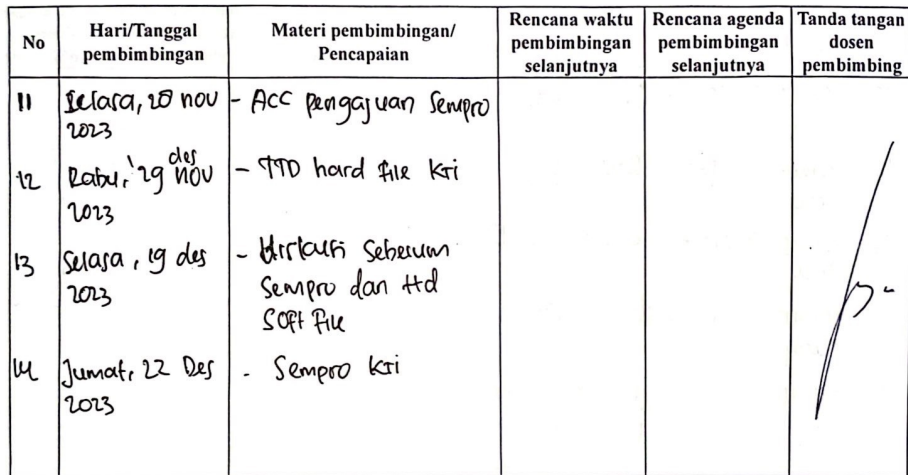 No
Hari/Tanggal
pembimbingan
Materi pembimbingan/
Pencapaian
Rencana waktu
pembimbingan
selanjutnya
Rencana agenda
pembimbingan
selanjutnya
Tanda tangan
dosen
pembimbing
11
Selasa, 28 nov
2023
- ACC pengajuan Sempro
12
des
Rabu, 29 nov
2023
- TTD hard file kti
13
Selasa, 19 des
2023
- Diskusi Sebelum
Sempro dan ttd
Soft File
14
Jumat, 22 Des
2023
- Sempro kti